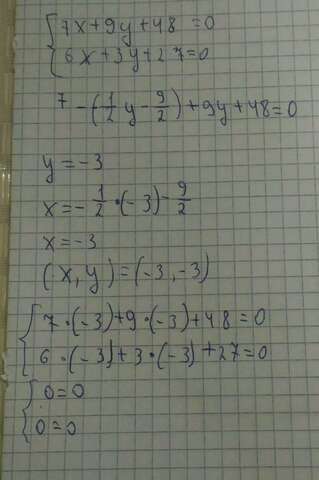 7x+9y+48 =0
6x+3y+27=0
7-(1/2y-9/2)+9y+48=0
y=-3
x=-1/2·(-3)-9/2
x=-3
(x,y)=(-3,-3)
7·(-3)+9·(-3)+48=0
6·(-3)+3·(-3)+27=0
0=0
0=0